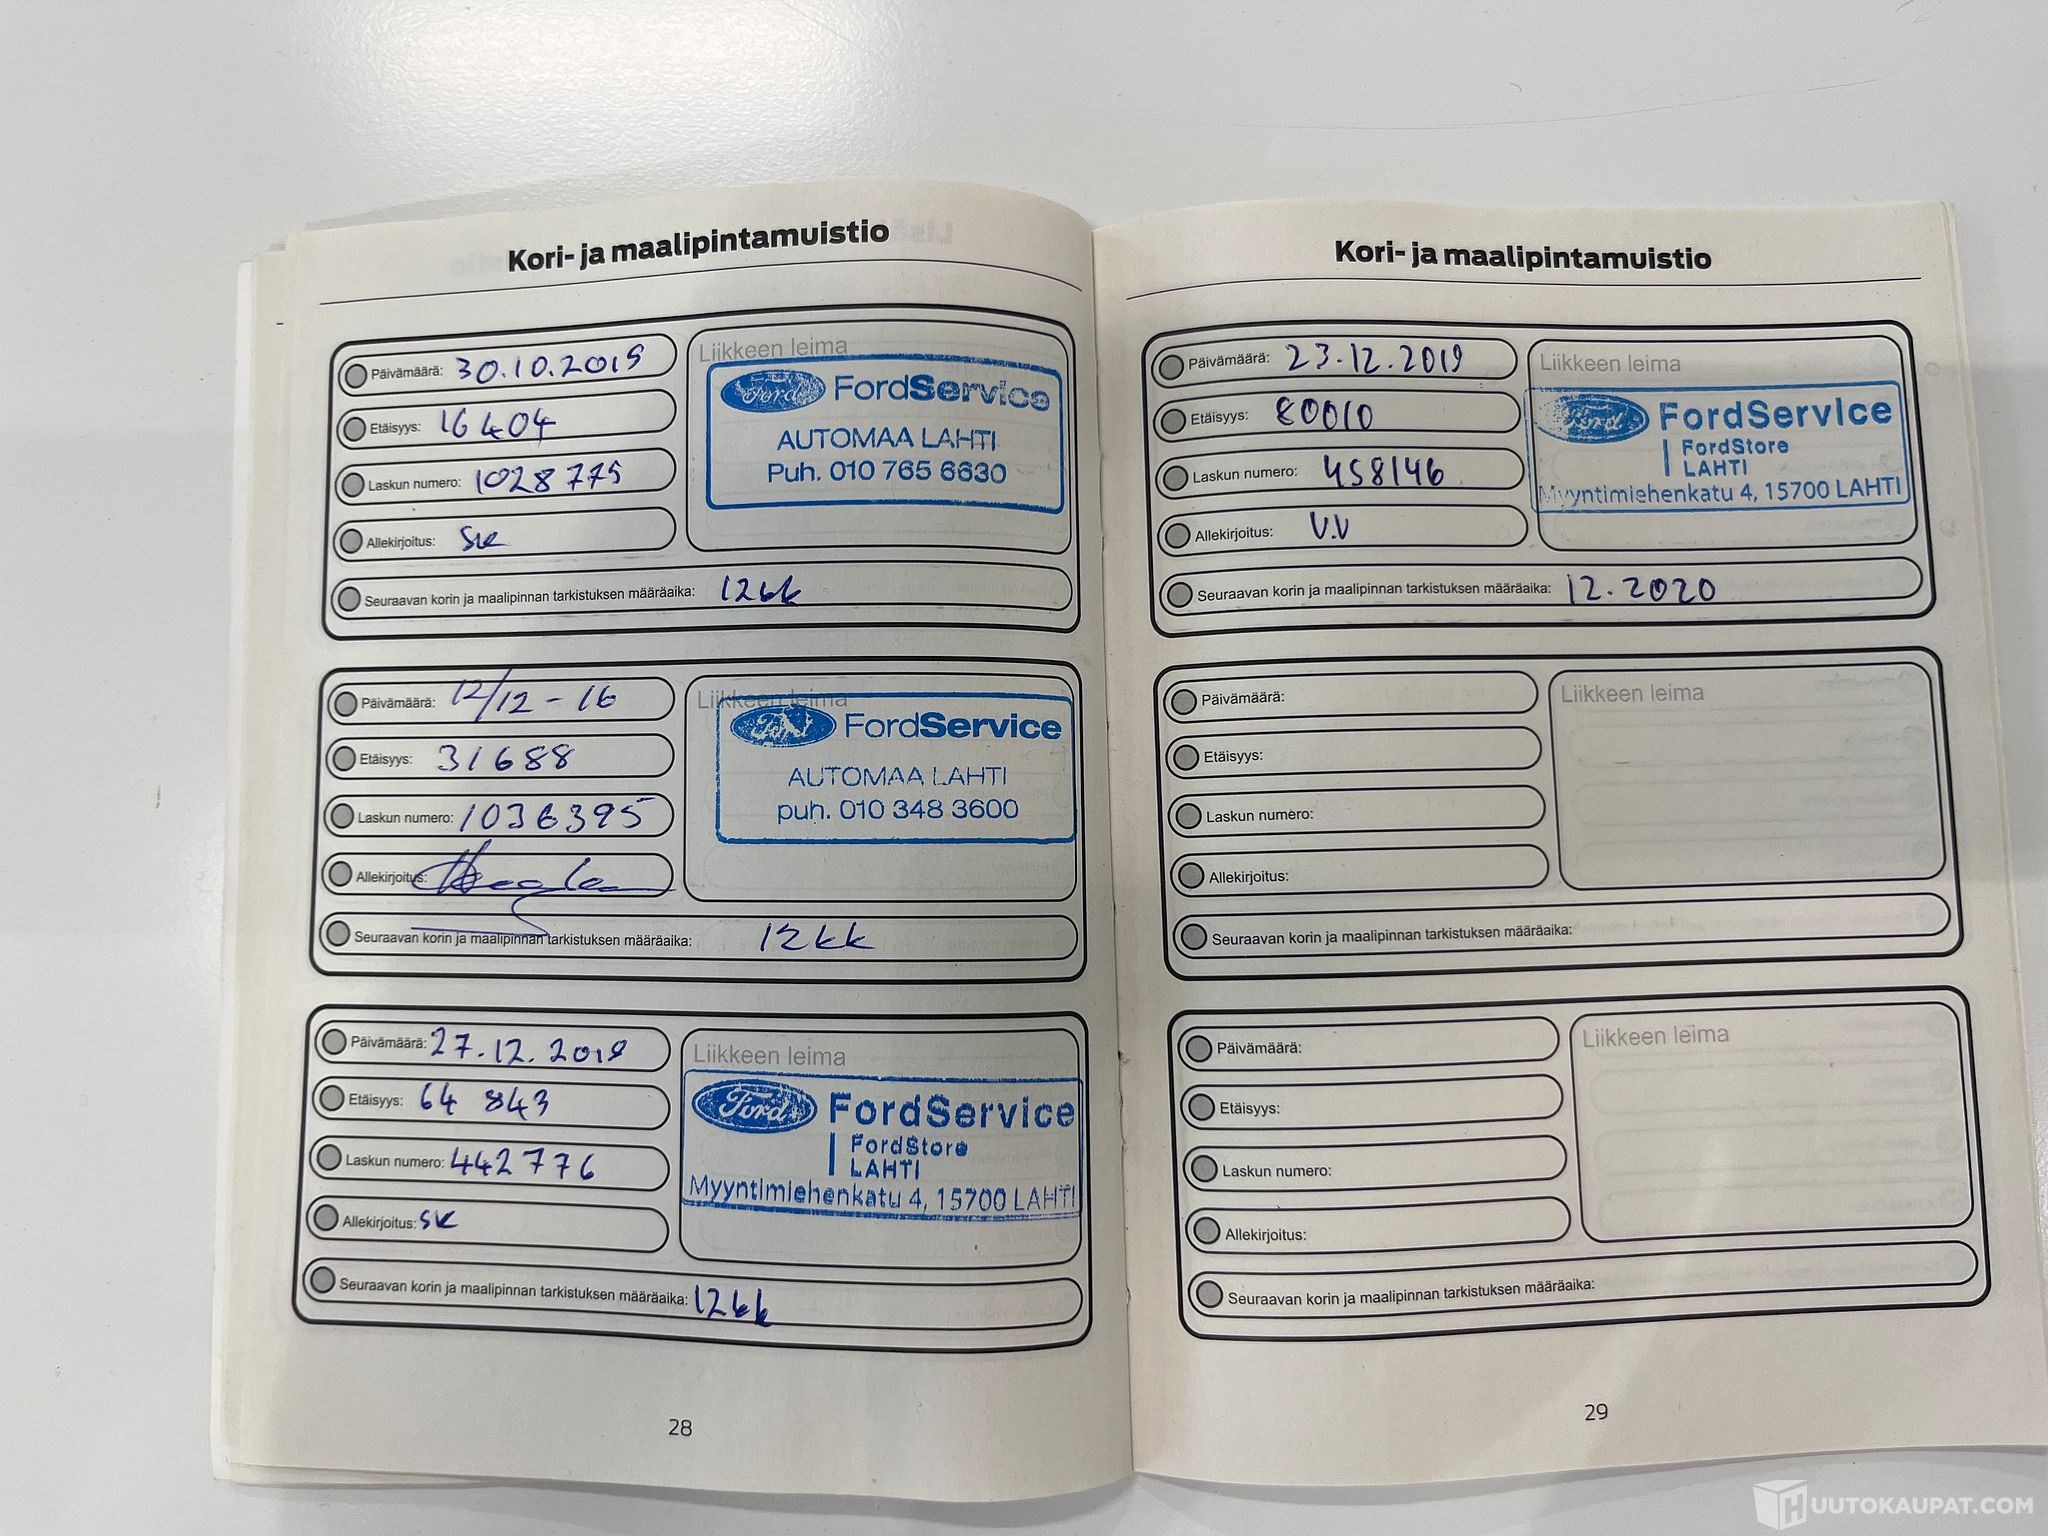 Kori- ja maalipintamuistio
Päivämäärä: 30.10.2015
Etäisyys: 16404
Laskun numero: 1028775
Allekirjoitus: SK
Seuraavan korin ja maalipinnan tarkistuksen määräaika: 12kk
Liikkeen leima
Ford FordService
AUTOMAA LAHTI
Puh. 010 765 6630
Päivämäärä: 12/12-16
Etäisyys: 31688
Laskun numero: 1036395
Allekirjoitus:
Seuraavan korin ja maalipinnan tarkistuksen määräaika: 12kk
Liikkeen leima
Ford FordService
AUTOMAA LAHTI
puh. 010 348 3600
Päivämäärä: 27.12.2018
Etäisyys: 64 843
Laskun numero: 442776
Allekirjoitus: SK
Seuraavan korin ja maalipinnan tarkistuksen määräaika: 12kk
Liikkeen leima
Ford FordService
FordStore
LAHTI
Myyntimiehenkatu 4, 15700 LAHTI
28
Kori- ja maalipintamuistio
Päivämäärä: 23.12.2019
Etäisyys: 80010
Laskun numero: 458146
Allekirjoitus: V.V
Seuraavan korin ja maalipinnan tarkistuksen määräaika: 12.2020
Liikkeen leima
Ford FordService
FordStore
LAHTI
Myyntimiehenkatu 4, 15700 LAHTI
Päivämäärä:
Etäisyys:
Laskun numero:
Allekirjoitus:
Seuraavan korin ja maalipinnan tarkistuksen määräaika:
Liikkeen leima
Päivämäärä:
Etäisyys:
Laskun numero:
Allekirjoitus:
Seuraavan korin ja maalipinnan tarkistuksen määräaika:
Liikkeen leima
29
HUUTOKAUPAT.COM